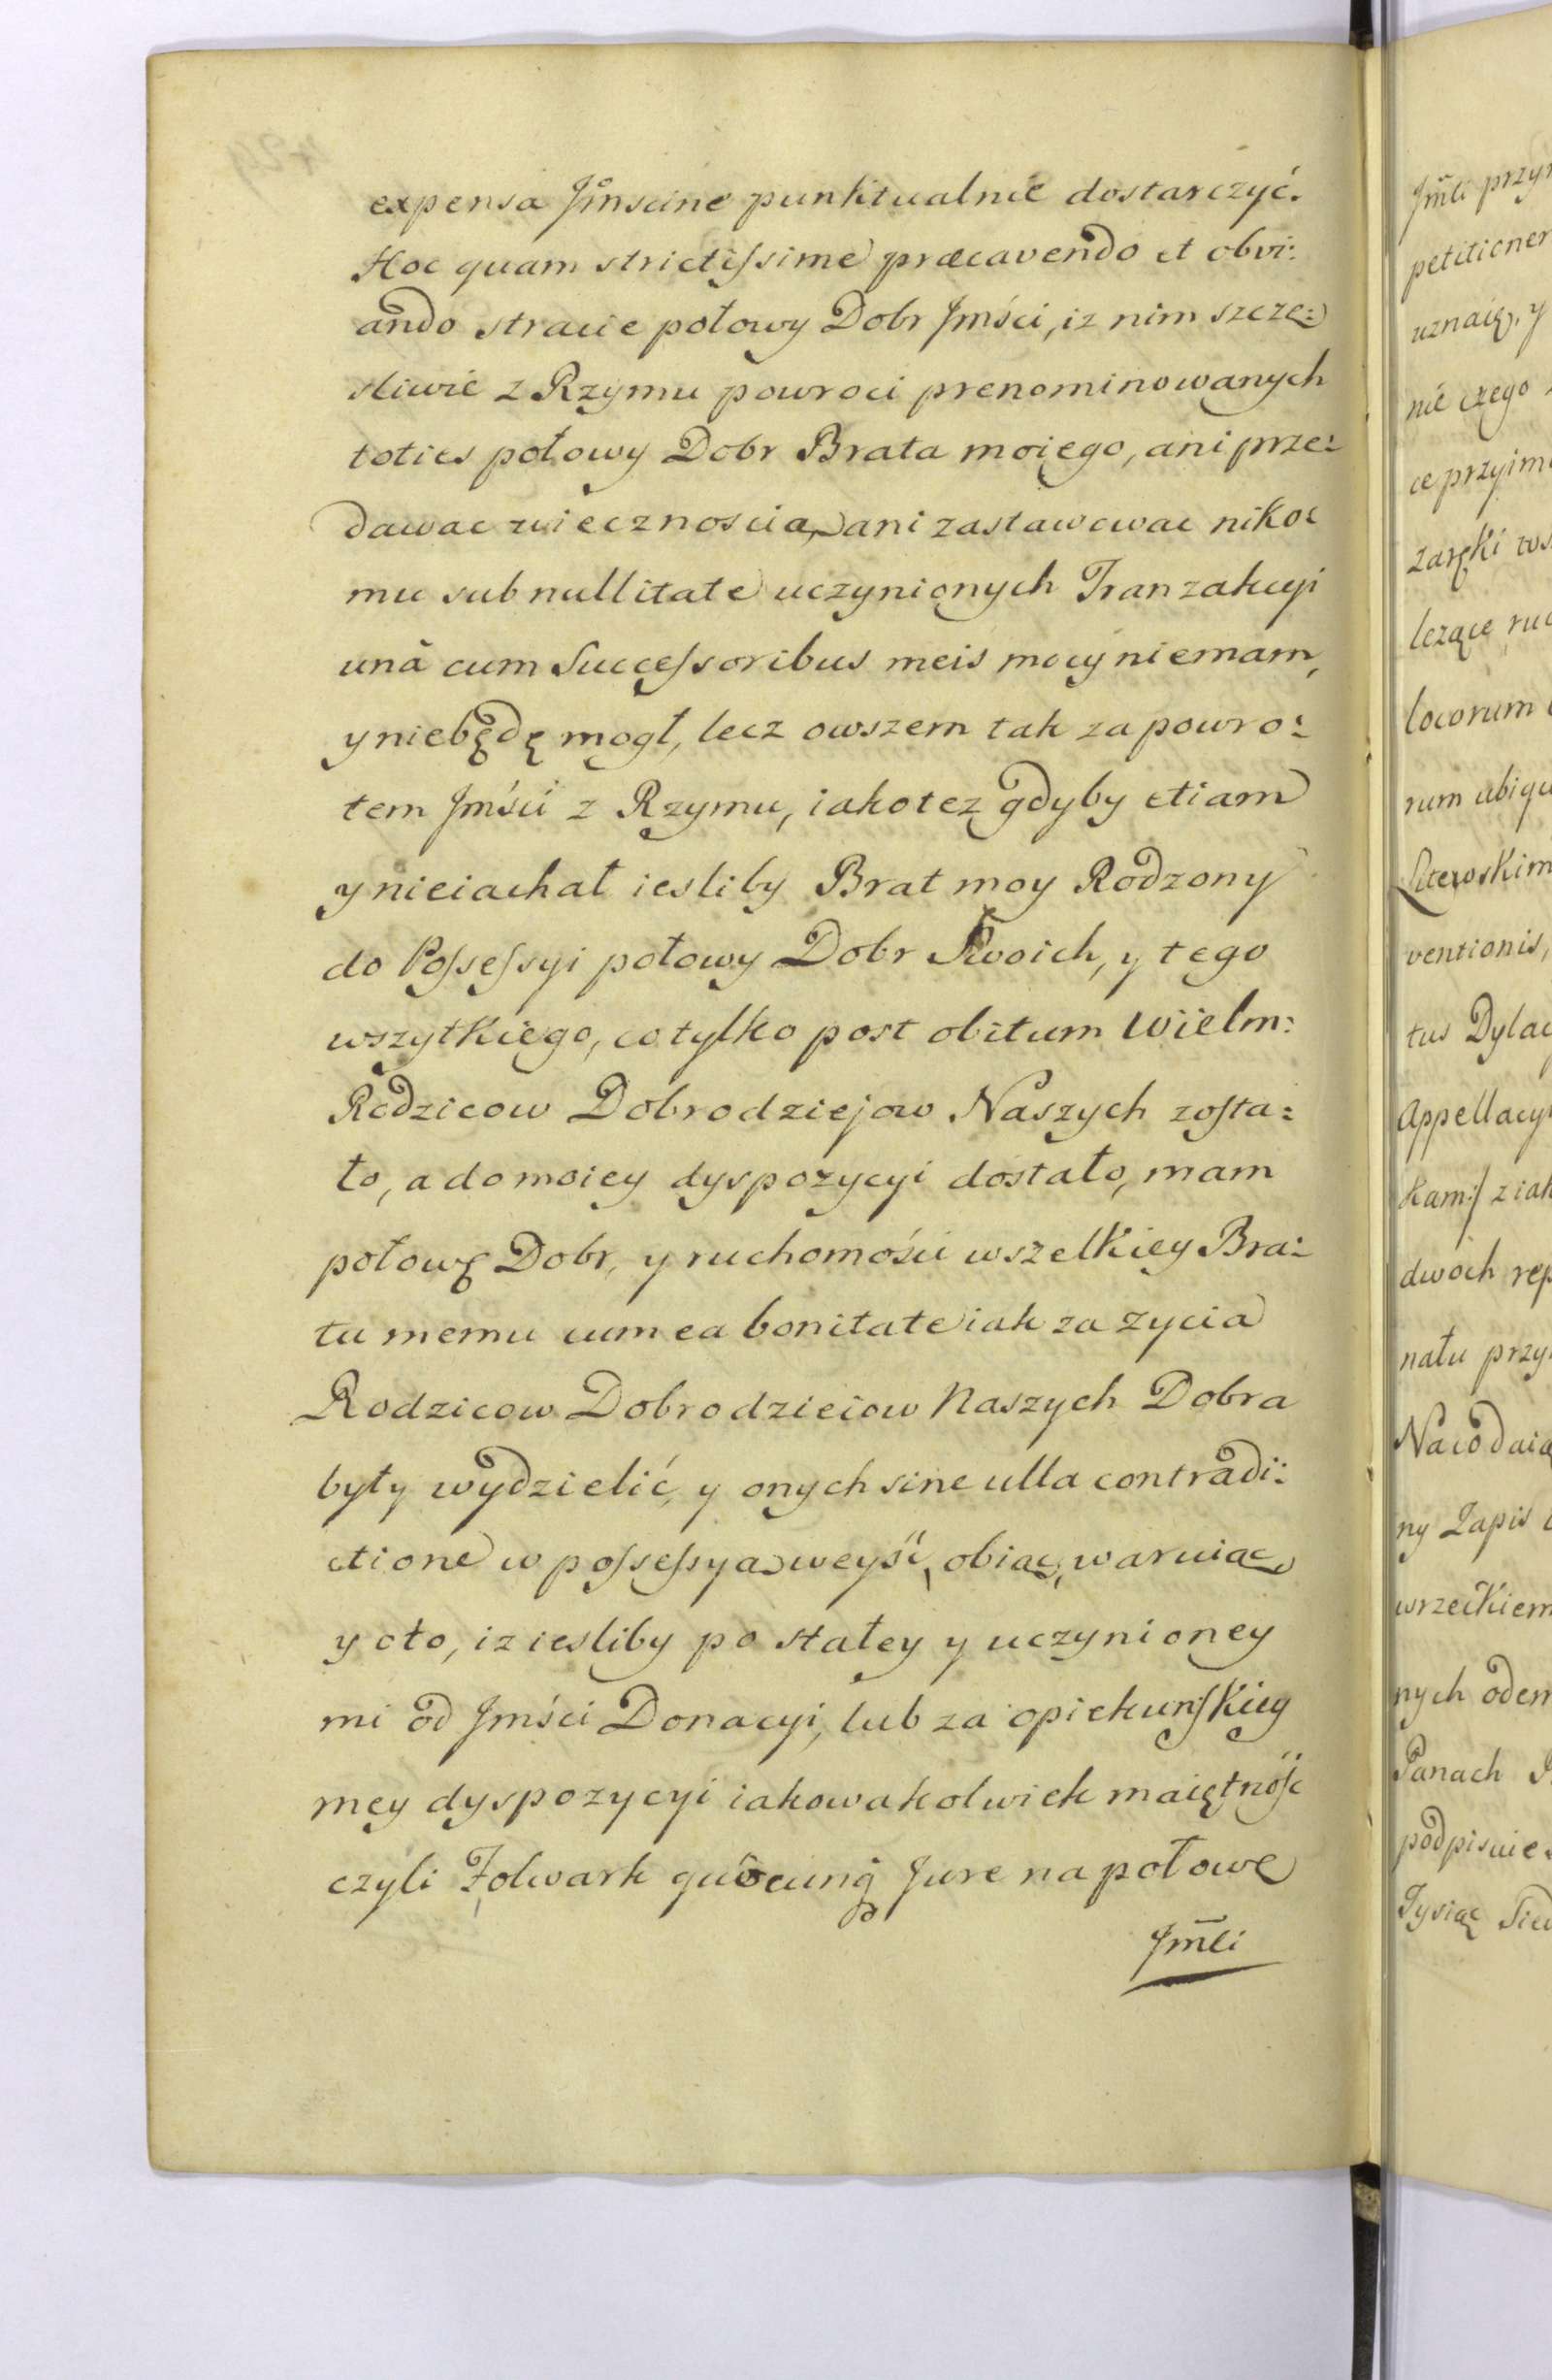 expensa Jmscine punktualnie dostarczyć.
Hoc quam strictissime præcavendo et obvi:
ando stracie połowy Dobr Jmści, iz nim szczę:
sliwie z Rzymu powroci prenominowanych
toties połowy Dobr Brata moiego, ani prze:
dawac wiecznoscią, ani zastawowac niko:
mu sub nullitate uczynionych Tranzakcyi
unà cum Successoribus meis mocy niemam,
y niebędę mogł, lecz owszem tak za powro:
tem Jmści z Rzymu, iakotez gdyby etiam
y nieiachał iesliby Brat moy Rodzony
do Possessyi połowy Dobr Swoich, y tego
wszytkiego, co tylko post obitum Wielm:
Rodzicow Dobrodziejow Naszych zosta:
ło, a do moiey dyspozycyi dostało, mam
połowę Dobr, y ruchomości wszelkiey Bra:
tu memu cum ea bonitate iak za zycia
Rodzicow Dobrodzieiow Naszych Dobra
były wydzielić, y onych sine ulla contradi:
ctione w possessyą weyść, obiąć, waruiąc,
y oto, iz iesliby po stałey y uczynioney
mi od Jmści Donacyi, lub za opiekunskiey
mey dyspozycyi iakowakolwiek maiętnośc
czyli Folwark quocunq Jure na połowę
Jmći
Jmći
petitioner
uznaię, y
nié czego
ce przyim
zaręki
lezące
locorum
rum ubiqu
ventionis,
tus
Appellacy
kami ziak
dwóch rep
nału przy
ny Zapis
nych odem
Panach
podpisuie
Tysiąc